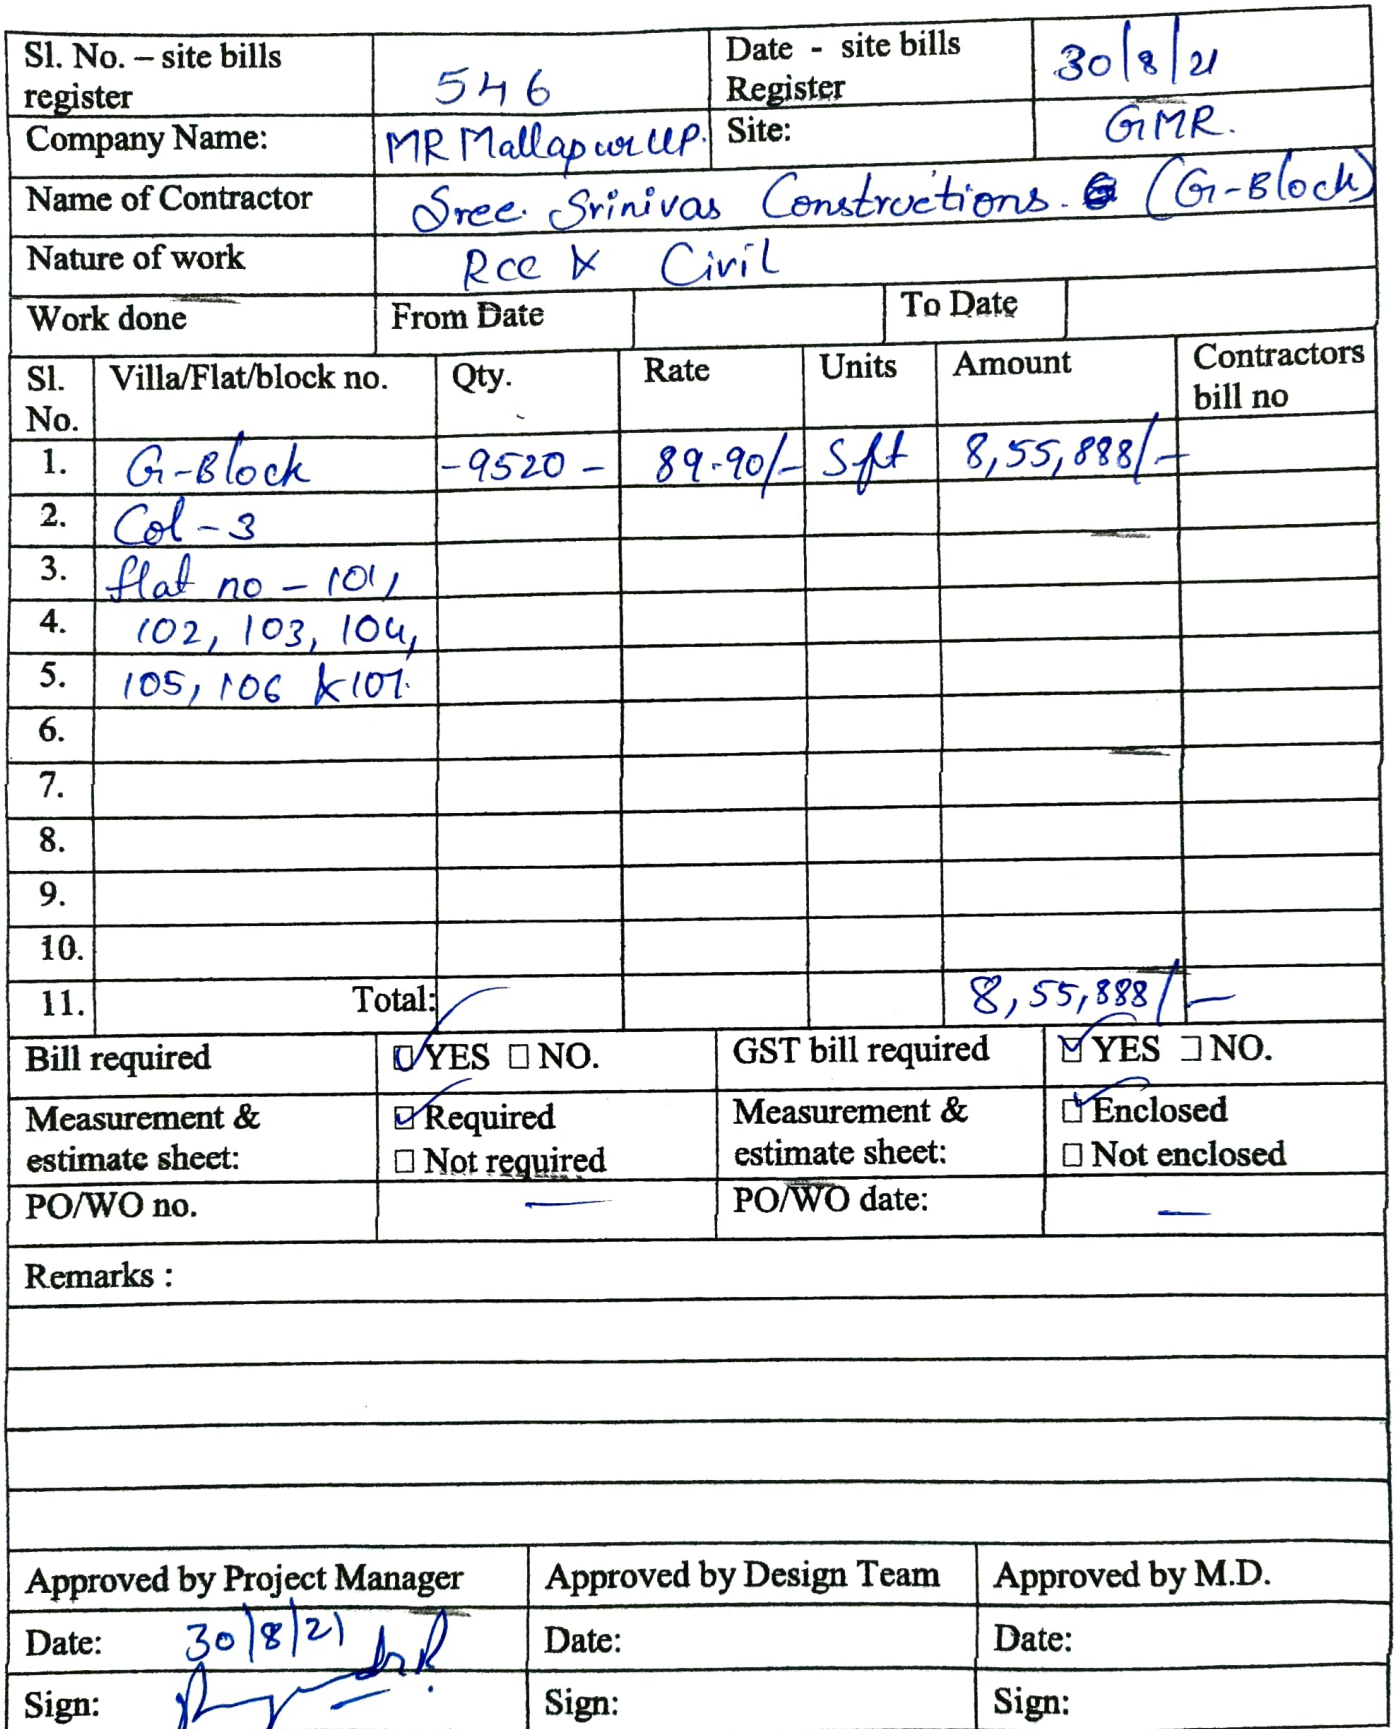 Sl. No. – site bills register 546 Date - site bills Register 30/8/21
Company Name: MR Mallapur LLP. Site: GMR.
Name of Contractor Sree Srinivas Constructions. (G-Block)
Nature of work Rcc & Civil
Work done From Date To Date
Sl. No. Villa/Flat/block no. Qty. Rate Units Amount Contractors bill no
1. G-Block -9520- 89.90/- Sft 8,55,888/-
2. Col-3
3. flat no - 101,
4. 102, 103, 104,
5. 105, 106 & 107.
6.
7.
8.
9.
10.
11. Total: 8,55,888/-
Bill required ☑ YES ☐ NO. GST bill required ☑ YES ☐ NO.
Measurement & estimate sheet: ☑ Required ☐ Not required Measurement & estimate sheet: ☑ Enclosed ☐ Not enclosed
PO/WO no. — PO/WO date: —
Remarks :
Approved by Project Manager Approved by Design Team Approved by M.D.
Date: 30/8/21 Date: Date:
Sign: Sign: Sign: